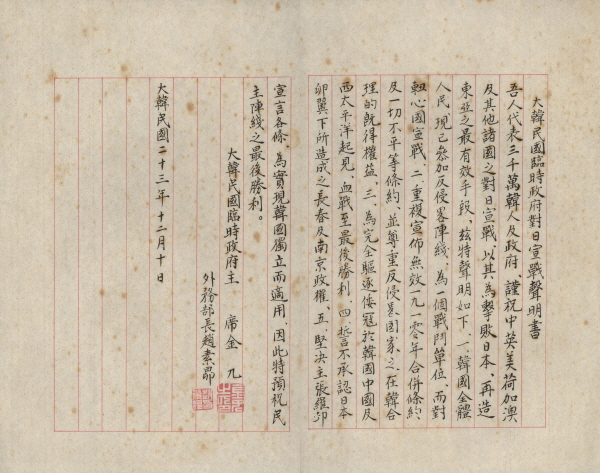 大韓民國臨時政府對日宣戰聲明書
吾人代表三千萬韓人及政府、謹祝中英美荷加澳
及其他諸國之對日宣戰、以其為擊敗日本、再造
東亞之最有效手段、玆特聲明如下、一、韓國全體
人民、現已參加反侵畧陣綫、為一個戰鬥單位、而對
軸心國宣戰、二、重複宣佈無效一九一〇年合併條約、
及一切不平等條約、並尊重反侵畧國家之、在韓合
理的既得權益、三、為完全驅逐倭寇於韓國中國及
西太平洋起見、血戰至最後勝利、四、誓不承認日本
卵翼下所造成之長春及南京政權、五、堅決主張羅邱
宣言各條、為實現韓國獨立而適用、因此特預祝民
主陣綫之最後勝利。
大韓民國臨時政府主 席金 九
外務部長趙素昻
大韓民國二十三年十二月十日